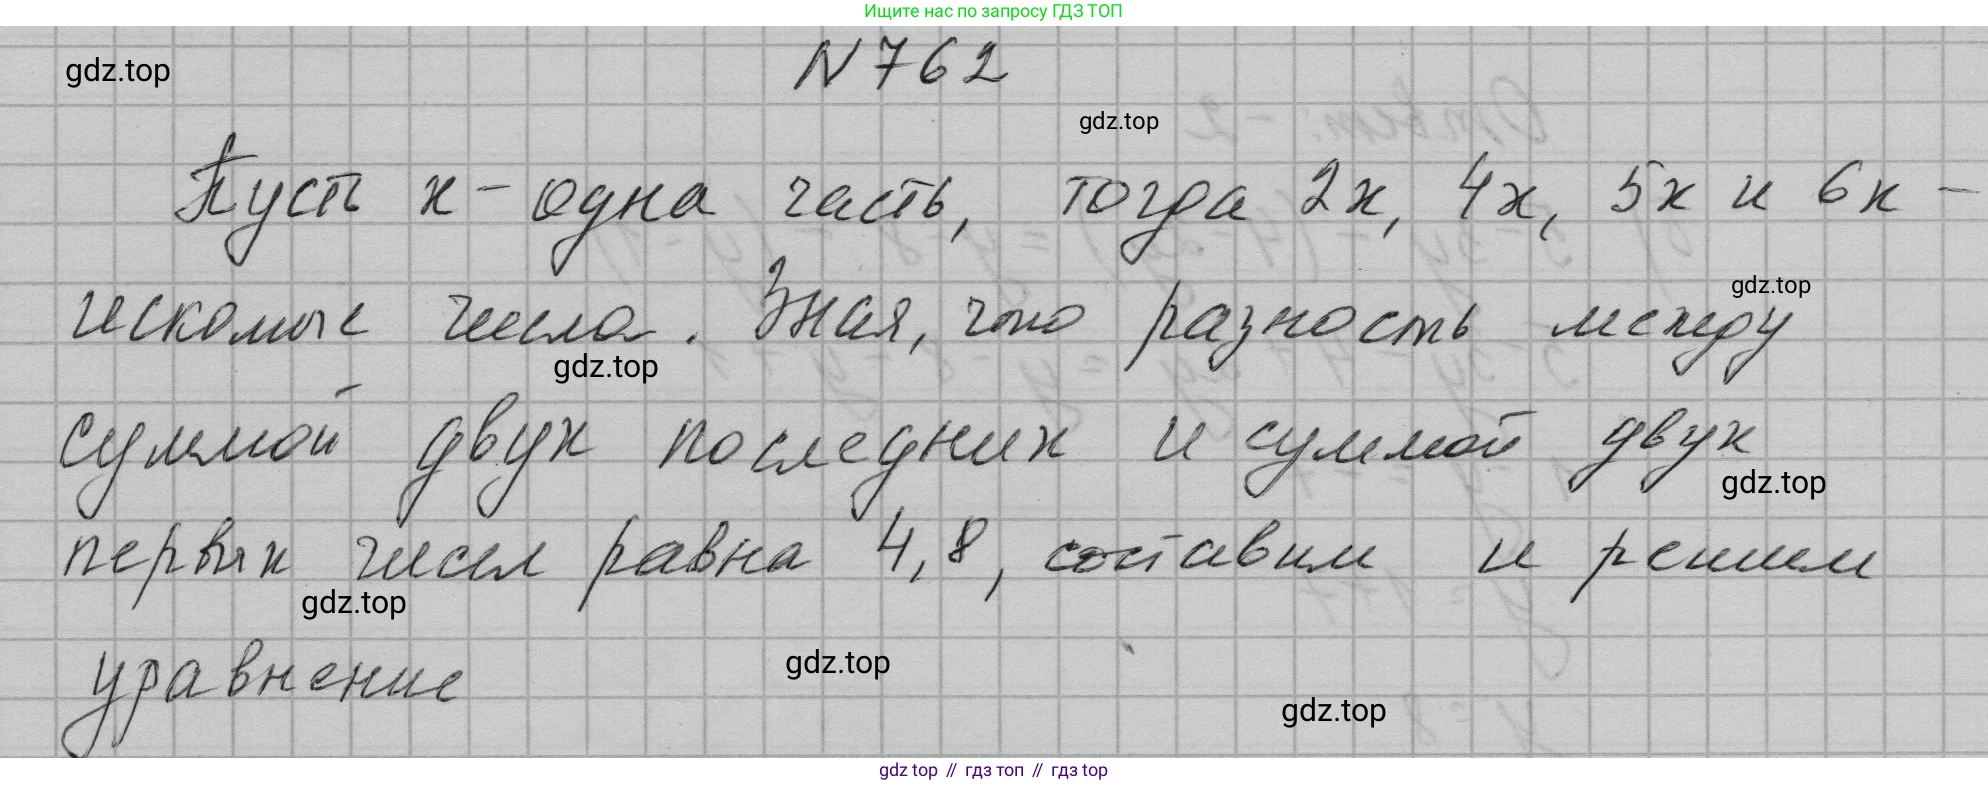 Ищите нас по запросу ГДЗ ТОП
N 762
gdz.top
gdz.top
Пусть x - одна часть, тогда 2x, 4x, 5x и 6x -
gdz.top
искомые числа. Зная, что разность между
gdz.top
суммой двух последних и суммой двух
gdz.top
первых чисел равна 4,8, составим и решим
gdz.top
уравнение
gdz.top
gdz.top
gdz top // гдз топ // gdz top